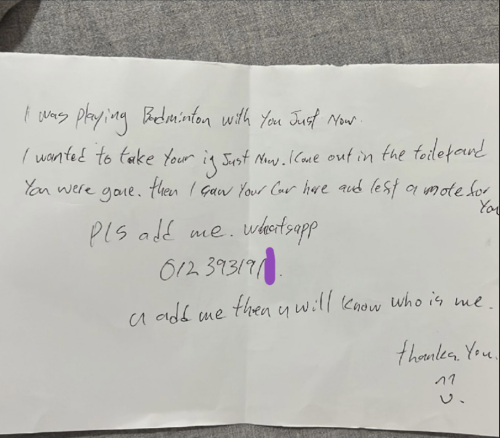 I was playing Badminton with You Just Now.
I wanted to take Your ig Just Now. I Come out in the toilet and
You were gone. then I saw Your Car here and left a note for
You
Pls add me. whatsapp
012 3931 91
u add me then u will know who is me.
thanks. You.
^^